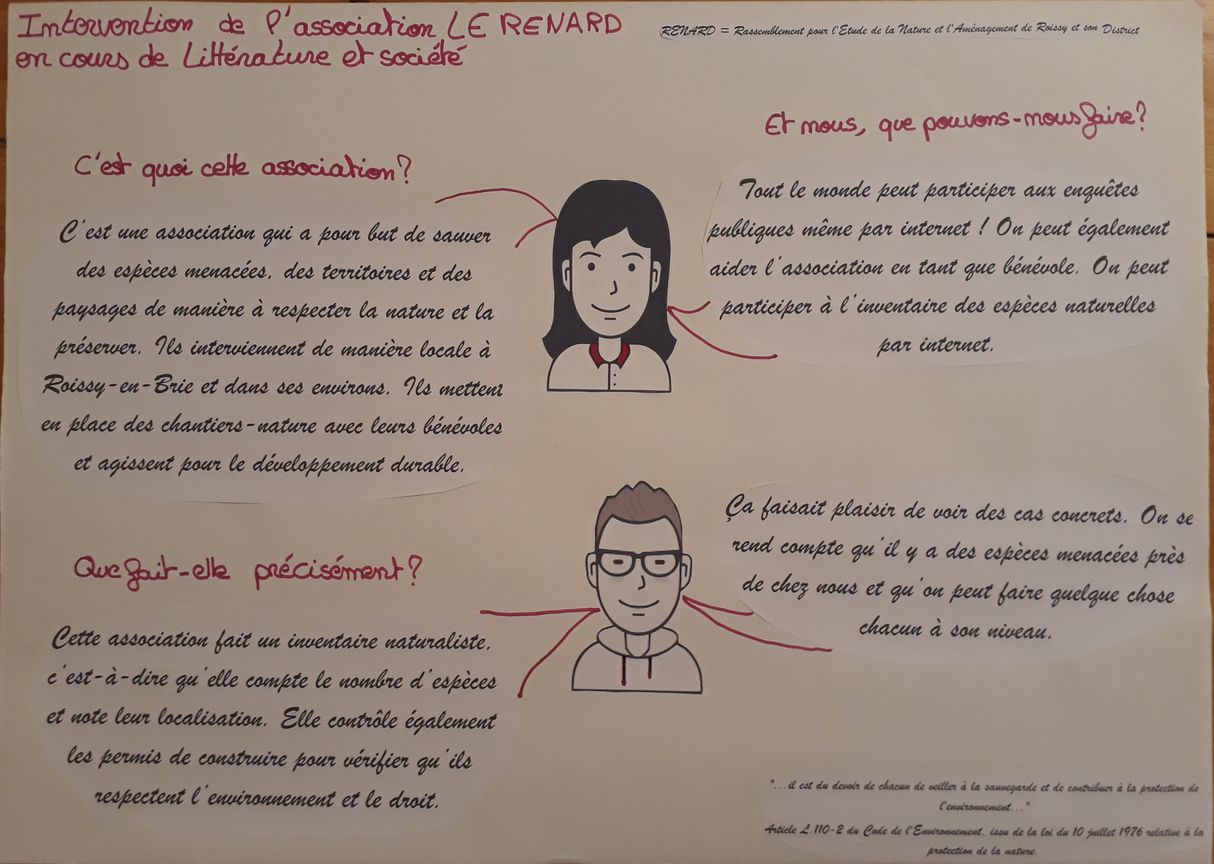 Intervention de l'association LE RENARD
en cours de Littérature et société
RENARD = Rassemblement pour l'Etude de la Nature et l'Aménagement de Roissy et son District
C'est quoi cette association?
C'est une association qui a pour but de sauver
des espèces menacées, des territoires et des
paysages de manière à respecter la nature et la
préserver. Ils interviennent de manière locale à
Roissy-en-Brie et dans ses environs. Ils mettent
en place des chantiers-nature avec leurs bénévoles
et agissent pour le développement durable.
Et nous, que pouvons-nous faire?
Tout le monde peut participer aux enquêtes
publiques même par internet ! On peut également
aider l'association en tant que bénévole. On peut
participer à l'inventaire des espèces naturelles
par internet.
Que fait-elle précisément?
Cette association fait un inventaire naturaliste,
c'est-à-dire qu'elle compte le nombre d'espèces
et note leur localisation. Elle contrôle également
les permis de construire pour vérifier qu'ils
respectent l'environnement et le droit.
Ça faisait plaisir de voir des cas concrets. On se
rend compte qu'il y a des espèces menacées près
de chez nous et qu'on peut faire quelque chose
chacun à son niveau.
"...il est du devoir de chacun de veiller à la sauvegarde et de contribuer à la protection de
l'environnement..."
Article L.110-2 du Code de l'Environnement, issu de la loi du 10 juillet 1976 relative à la
protection de la nature.